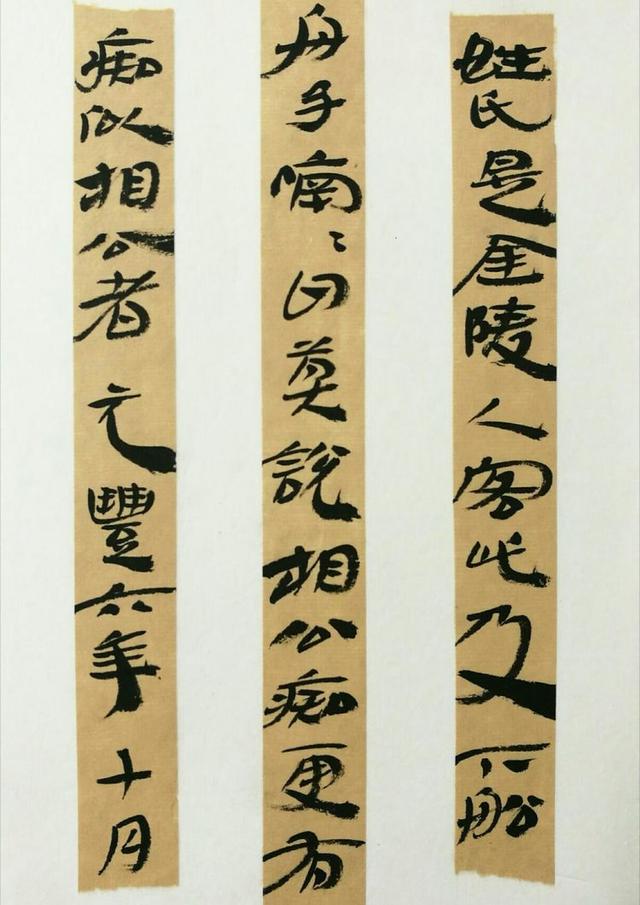 姓氏是金陵人客此及下船
舟子喃〻曰莫說相公痴更有
痴似相公者元豐六年十月